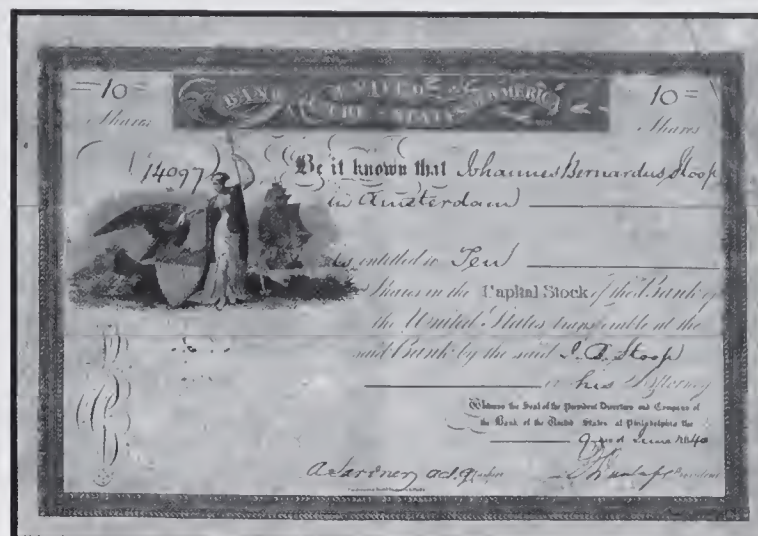 =10=
Shares
BANK OF THE UNITED STATES OF AMERICA
10=
Shares
14097
Be it known that Johannes Bernardus Stoop
in Amsterdam
is entitled to Ten
Shares in the Capital Stock of the Bank of
the United States transferable at the
said Bank by the said J. B. Stoop
or his Attorney
Witness the Seal of the President Directors and Company of
the Bank of the United States at Philadelphia the
June 1840
A Lardner
President